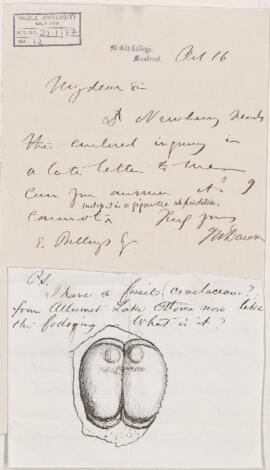 McGILL UNIVERSITY
ARCHIVES
ACC. NO.
REF.
McGill College,
Montreal.
Oct 16
My dear Sir
Dr Newberry sends
the enclosed inquiry in
a late letter to me
Can you answer it? I
unless it is a gigantic
cannot. Truly yours
E. Billings Esq JW Dawson
P.S.
I have a fossil crustacean?
from Allumet Lake Ottawa now like
the following What is it?